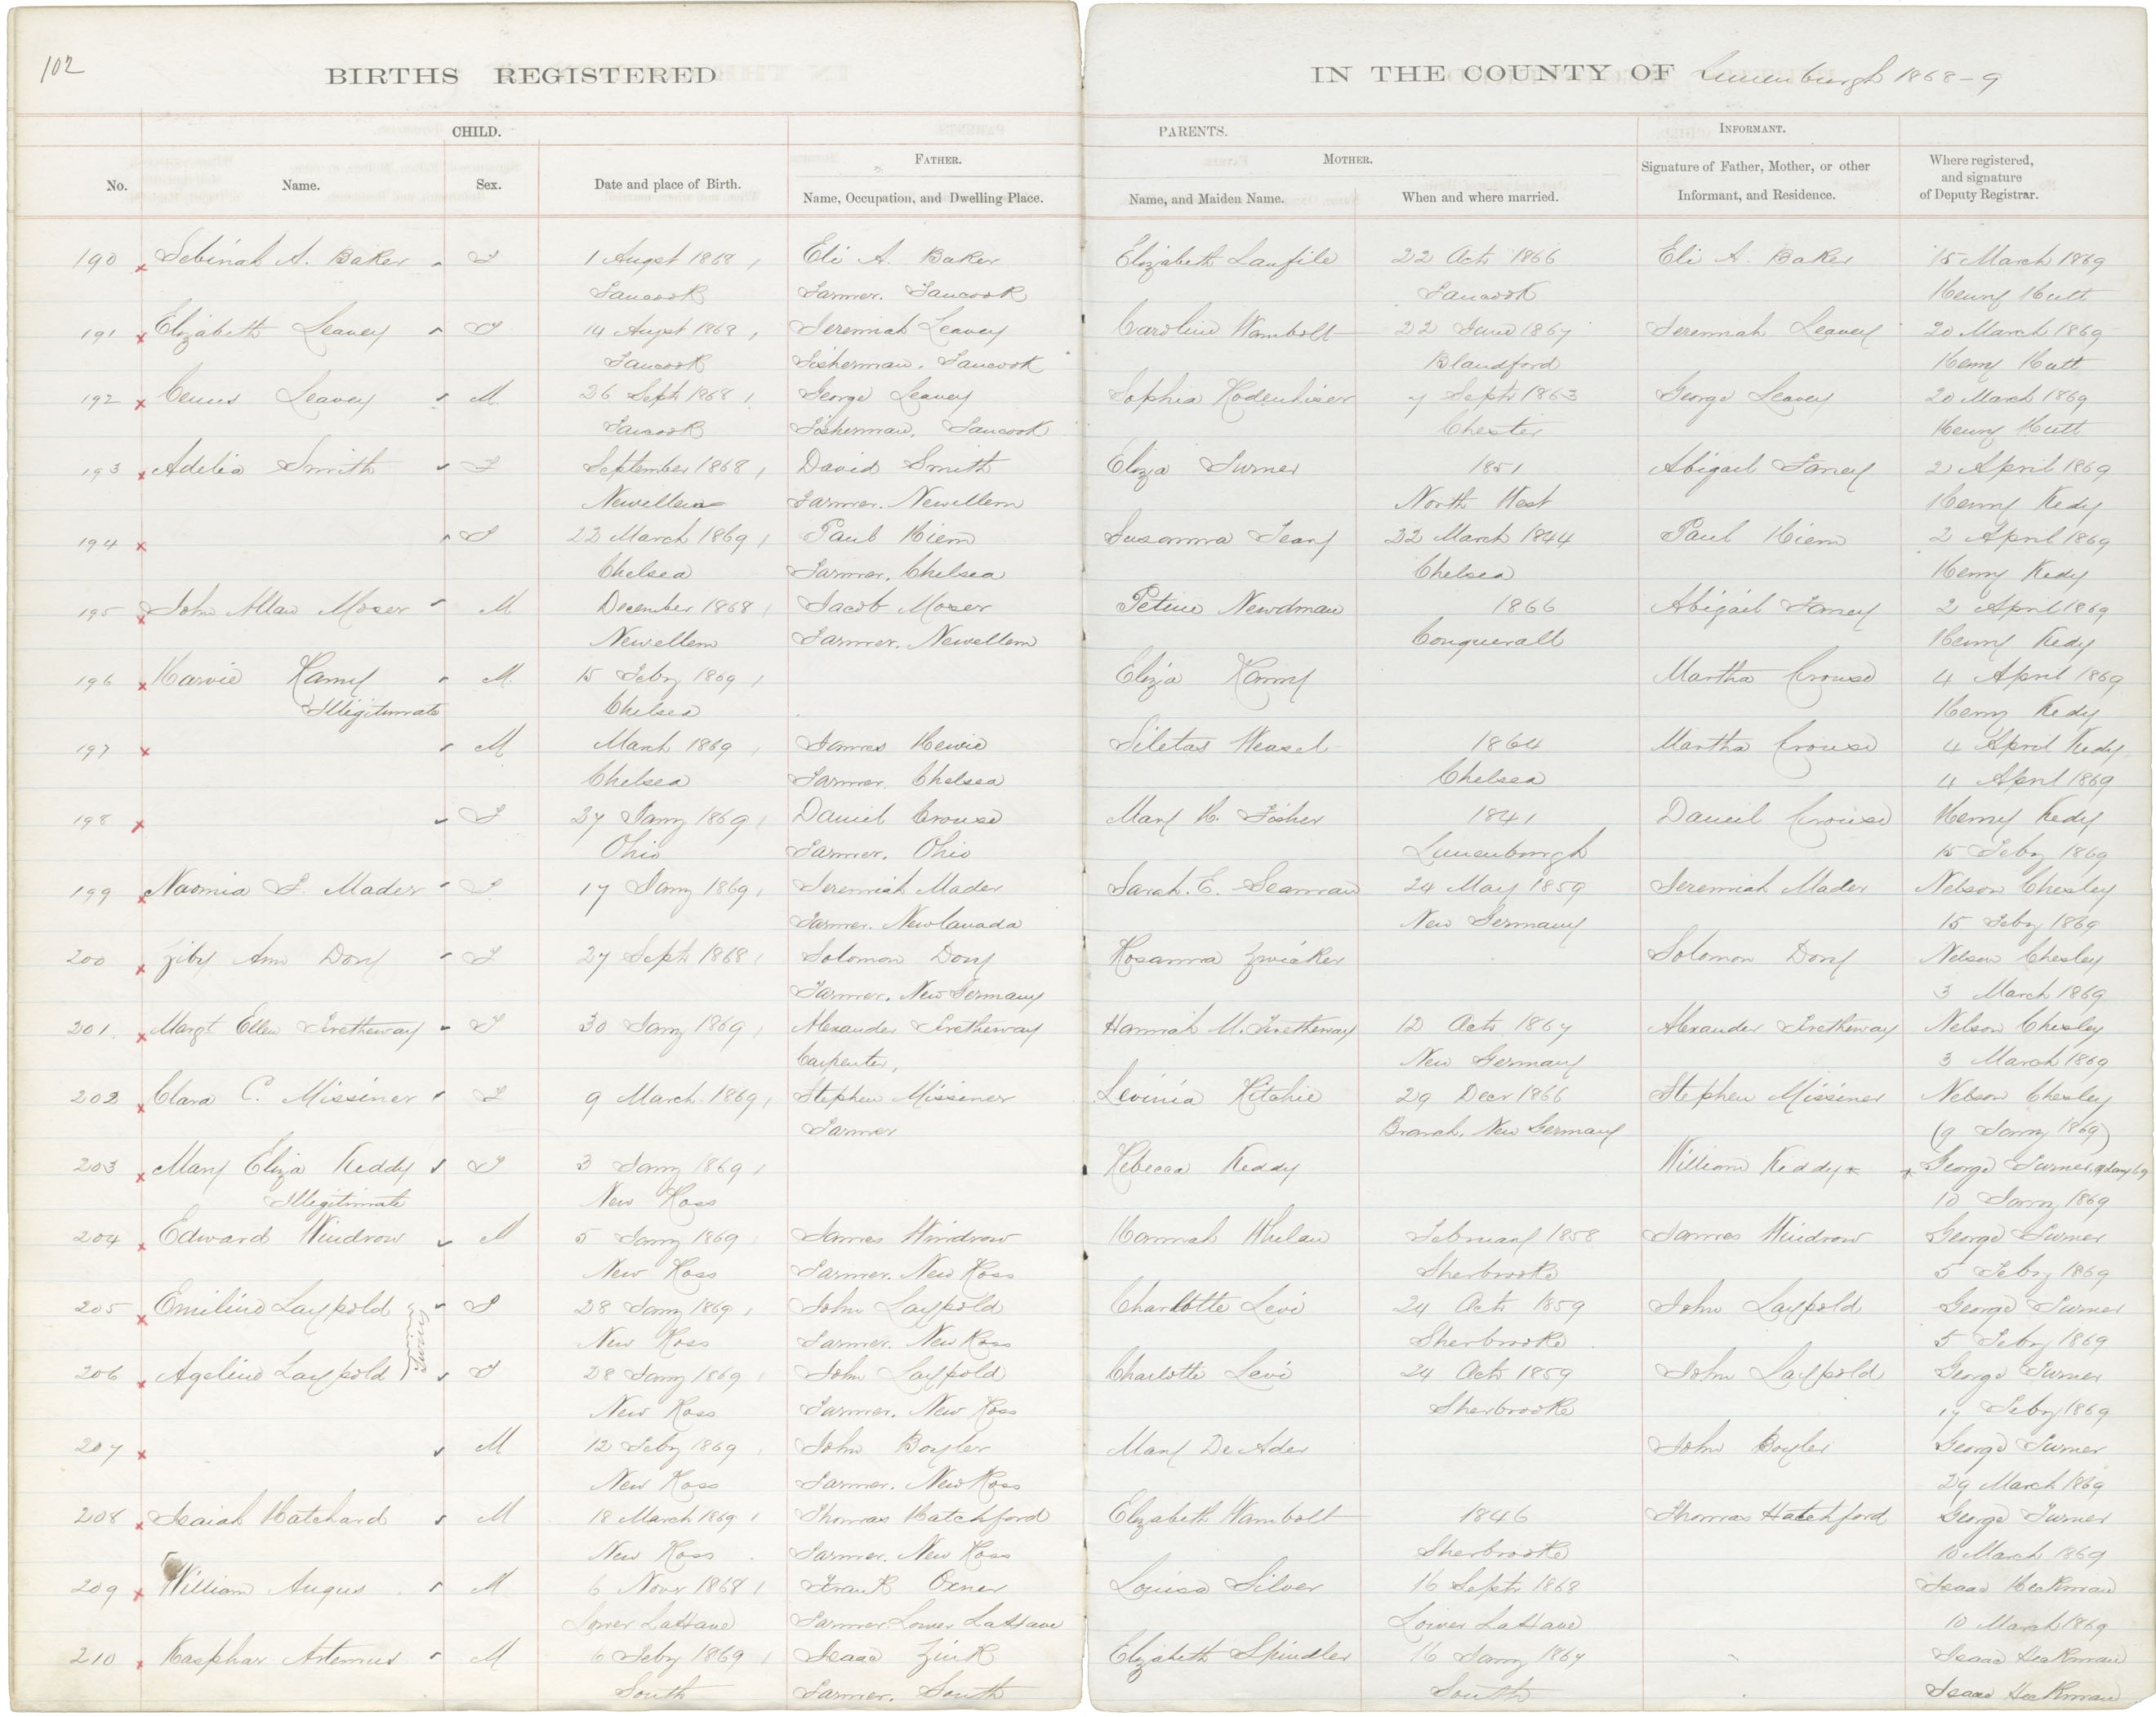 102
BIRTHS REGISTERED
IN THE COUNTY OF Lunenburgh 1868-9
CHILD.
PARENTS.
INFORMANT.
FATHER.
MOTHER.
No. Name. Sex. Date and place of Birth. Name, Occupation, and Dwelling Place. Name, and Maiden Name. When and where married. Signature of Father, Mother, or other Informant, and Residence. Where registered, and signature of Deputy Registrar.
190 Sebinah A. Baker F 1 Augst 1868 Eli A. Baker Elizabeth Lanfile 22 Octr 1866 Eli A. Baker 15 March 1869
Tancook Farmer. Tancook Tancook Henry Hutt
191 Elizabeth Leavey F 14 Augst 1868 Jeremiah Leavey Caroline Wambolt 22 June 1867 Jeremiah Leavey 20 March 1869
Tancook Fisherman. Tancook Blandford Henry Hutt
192 Cenus Leavey M. 26 Septr 1868 George Leavey Sophia Rodenhiser 7 Septr 1863 George Leavey 20 March 1869
Tancook Fisherman. Tancook Chester Henry Hutt
193 Adelia Smith F September 1868 David Smith Eliza Turner 1851 Abigail Faney 2 April 1869
Newellem Farmer. Newellem North West Henry Kedy
194 F 22 March 1869 Paul Hiem Susanna Feany 22 March 1844 Paul Hiem 2 April 1869
Chelsea Farmer. Chelsea Chelsea Henry Kedy
195 John Allan Moser M December 1868 Jacob Moser Petine Newdman 1866 Abigail Faney 2 April 1869
Newellem Farmer. Newellem Conquerall Henry Kedy
196 Harvie Ramy M. 15 Feby 1869 Eliza Ramy Martha Crouse 4 April 1869
Illigitimate Chelsea Henry Kedy
197 M March 1869 James Hewie Siletas Weasel 1864 Martha Crouse 4 April Kedy
Chelsea Farmer. Chelsea Chelsea 4 April 1869
198 F 27 Jany 1869 Daniel Crouse Mary H. Fisher 1841 Daniel Crouse Henry Kedy
Ohio Farmer. Ohio Lunenburgh 15 Feby 1869
199 Naomia F. Mader F. 17 Jany 1869 Jeremiah Mader Sarah. E. Seaman 24 May 1859 Jeremiah Mader Nelson Chesley
Farmer. New Canada New Germany 15 Feby 1869
200 Ziby Ann Dory F 27 Septr 1868 Solomon Dory Rosanna Zwicker Solomon Dory Nelson Chesley
Farmer. New Germany 3 March 1869
201. Margt Ellen Tretheway F 30 Jany 1869 Alexander Tretheway Hannah M. Tretheway 12 Octr 1867 Alexander Tretheway Nelson Chesley
Carpenter, New Germany 3 March 1869
202 Clara C. Missiner F 9 March 1869 Stephen Missiner Levinia Ritchie 29 Decr 1866 Stephen Missiner Nelson Chesley
Farmer Branch. New Germany (9 Jany 1869)
203 Mary Eliza Keddy F 3 Jany 1869 Rebecca Keddy William Keddy x x George Turner, 9 Jany 69
Illigitimate New Ross 10 Jany 1869
204 Edward Windrow M 5 Jany 1869 James Windrow Hannah Whelan February 1858 James Windrow George Turner
New Ross Farmer. New Ross Sherbrooke 5 Feby 1869
205 Emiline Laypold Twins F 28 Jany 1869 John Laypold Charlotte Levi 24 Octr 1859 John Laypold George Turner
New Ross Farmer. New Ross Sherbrooke 5 Feby 1869
206 Ageline Laypold F 28 Jany 1869 John Laypold Charlotte Levi 24 Octr 1859 John Laypold George Turner
New Ross Farmer. New Ross Sherbrooke 17 Feby 1869
207 M 12 Feby 1869 John Boyler Mary De Ader John Boyler George Turner
New Ross Farmer. New Ross 29 March 1869
208 Isaiah Hatchard M 18 March 1869 Thomas Hatchford Elizabeth Wambolt 1846 Thomas Hatchford George Turner
New Ross Farmer. New Ross Sherbrooke 10 March 1869
209 William Angus M 6 Novr 1868 Frank Oxner Louisa Silver 16 Septr 1868 Isaac Heckman
Lower LaHave Farmer. Lower LaHave Lower LaHave 10 March 1869
210 Kasphar Artemus M 6 Feby 1869 Isaac Zink Elizabeth Spindler 16 Jany 1864 Isaac Heckman
South Farmer. South South Isaac Heckman